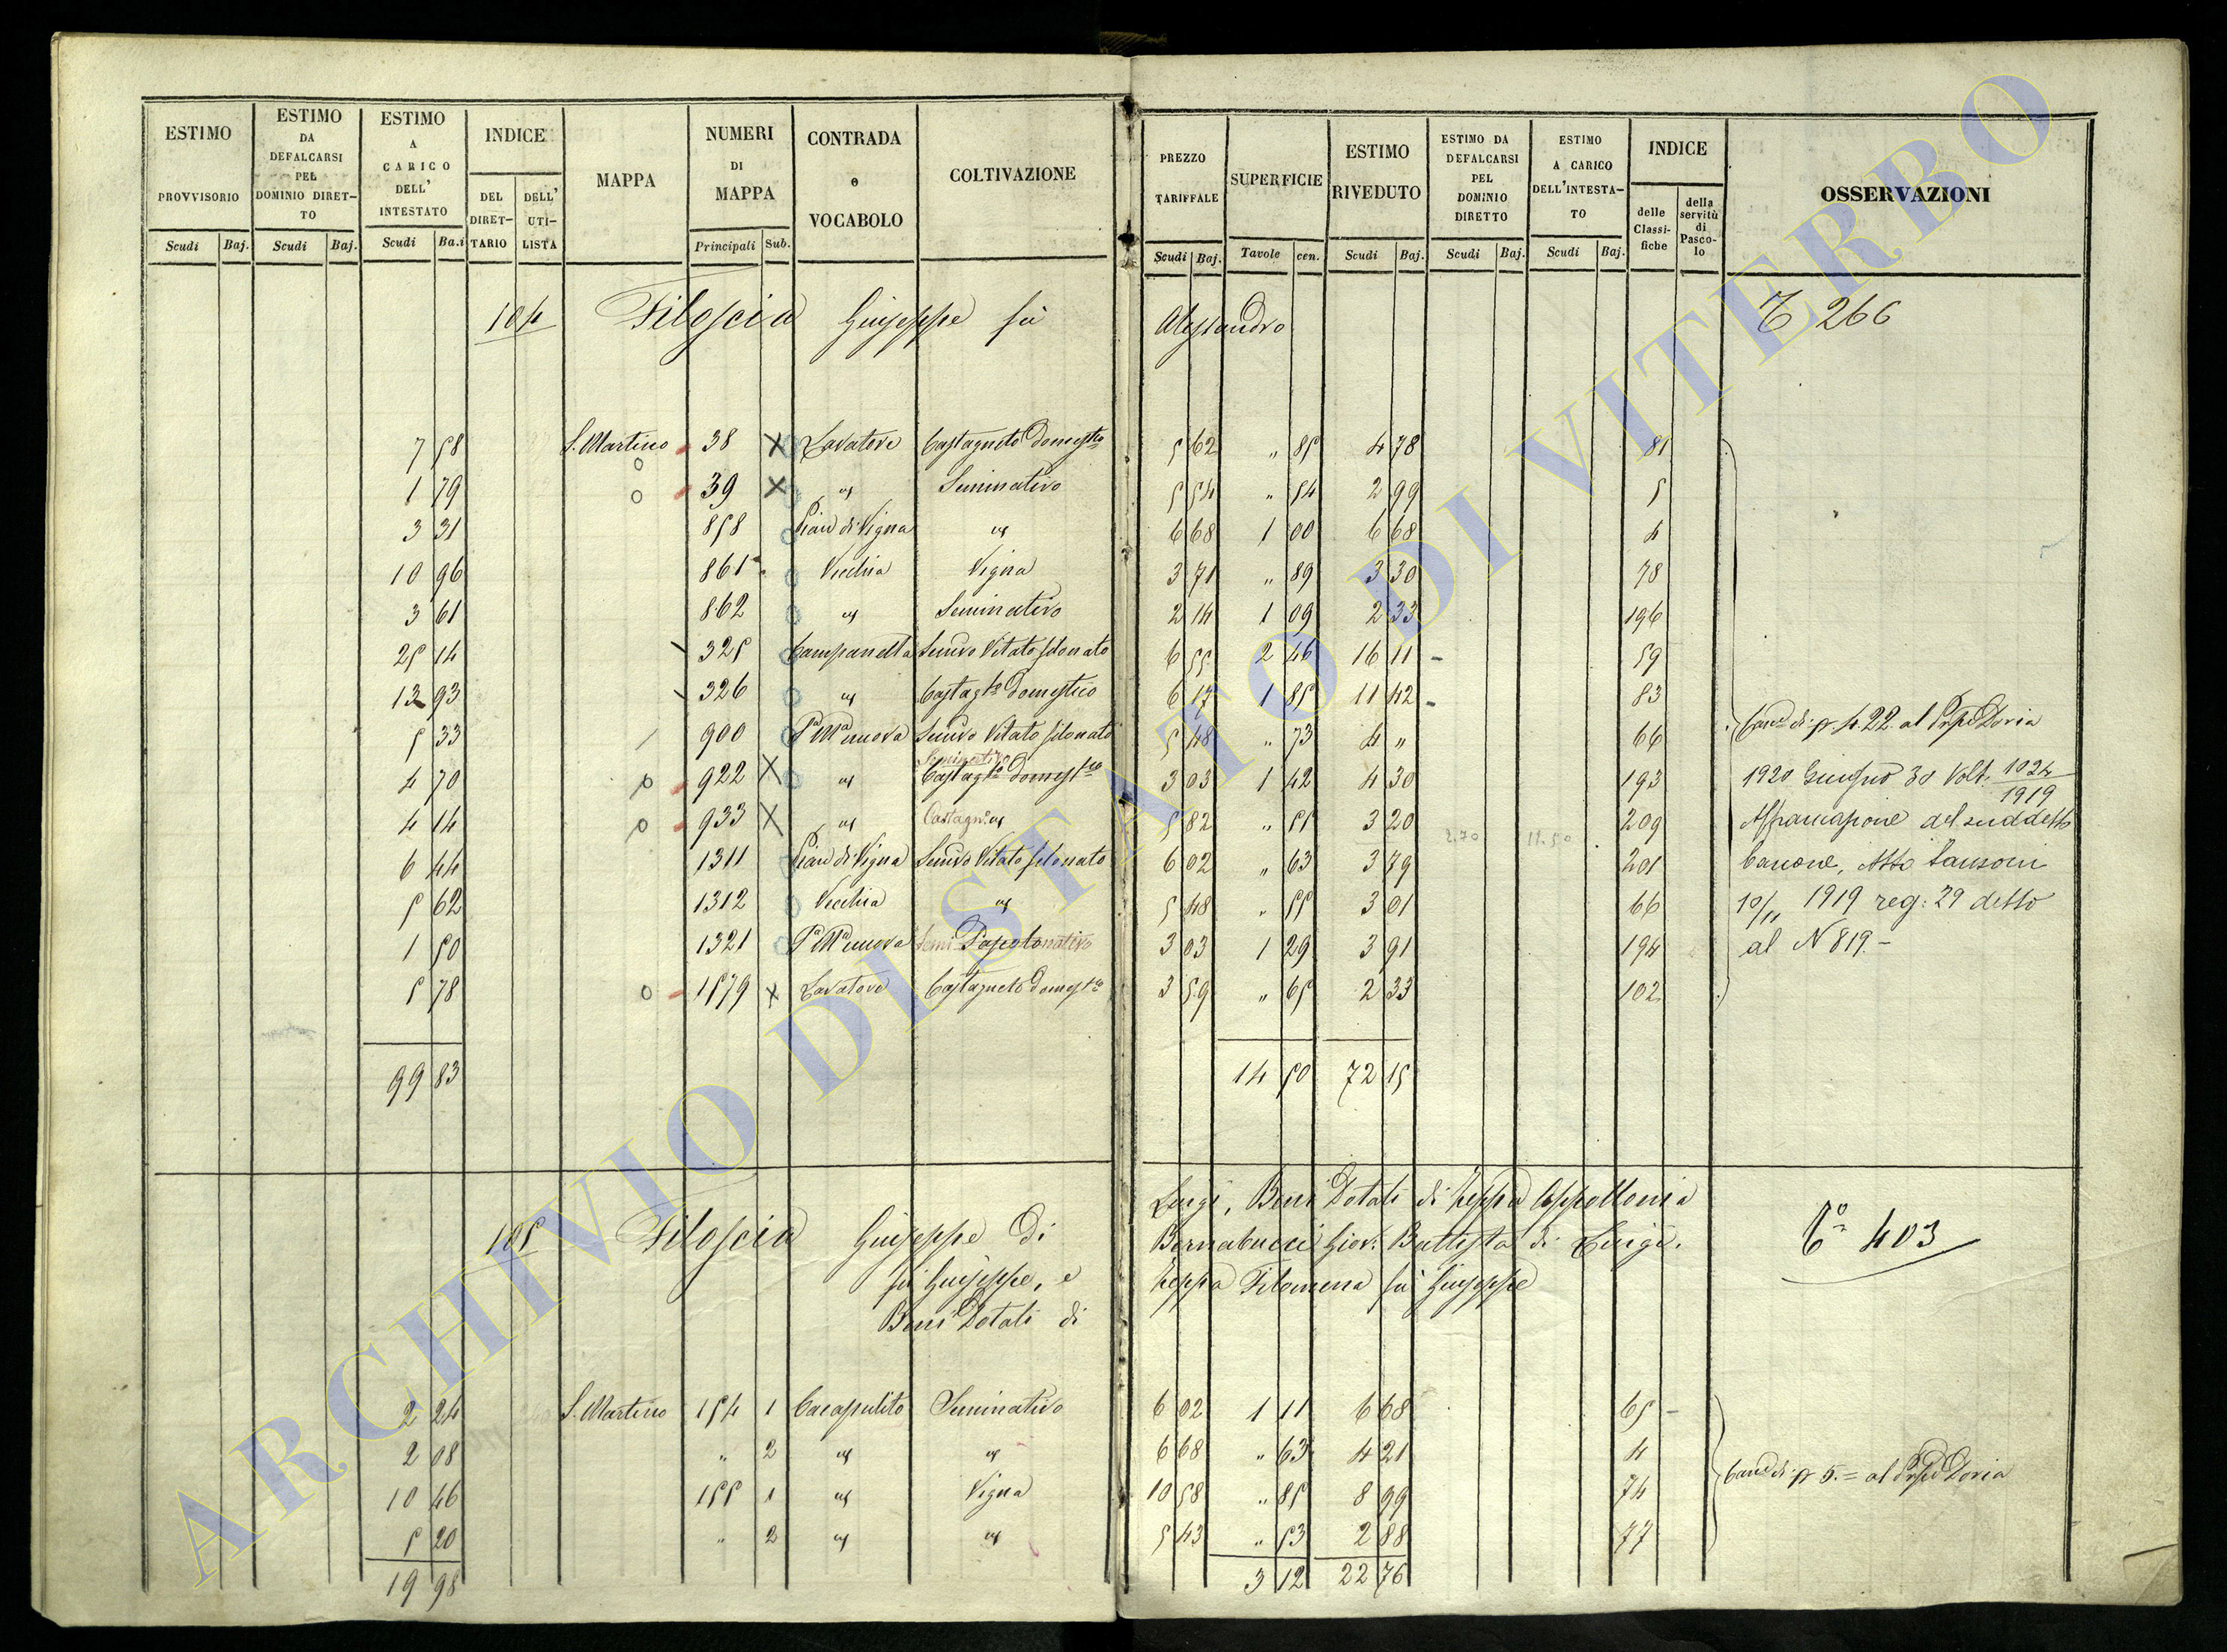 ESTIMO PROVVISORIO
ESTIMO DA DEFALCARSI PEL DOMINIO DIRET-TO
ESTIMO A CARICO DELL' INTESTATO
INDICE
DEL DIRET-TARIO
DELL' UTI-LISTA
MAPPA
NUMERI DI MAPPA
CONTRADA o VOCABOLO
COLTIVAZIONE
PREZZO TARIFFALE
SUPERFICIE
ESTIMO RIVEDUTO
ESTIMO DA DEFALCARSI PEL DOMINIO DIRETTO
ESTIMO A CARICO DELL'INTESTA-TO
INDICE
delle Classi-fiche
della servitù di Pasco-lo
OSSERVAZIONI
Scudi Baj. Scudi Baj. Scudi Ba.i Principali Sub. Scudi Baj. Tavole cen. Scudi Baj. Scudi Baj. Scudi Baj.
104 Filoscia Giuseppe fù Alessandro 266
7 58 S. Martino 38 X Lavatore Castagneto Domestco 5 62 " 85 4 78 81
1 79 39 X " Seminativo 5 54 " 54 2 99 5
3 31 858 Pian di Vigna " 6 68 1 00 6 68 4
10 96 861 Vecchia Vigna 3 71 " 89 3 30 78
3 61 862 " Seminativo 2 14 1 09 2 33 196
25 14 325 Campanella Semvo Vitato filonato 6 55 2 46 16 11 59
13 93 326 " Castagto Domestico 6 17 1 85 11 42 83
5 33 900 Pa Ma nuova Semvo Vitato filonato 5 48 " 73 4 " 66
Cane di 4.22. al Prpe Doria
Seminativo
4 70 922 X " Castagto Domestco 3 03 1 42 4 30 193
1920 Giugno 30 Volt. 1024/1919
4 14 933 X " Castagn. " 5 82 " 55 3 20 2.70 209
Affrancazione del suddetto
6 44 1311 Pian di Vigna Semvo Vitato filonato 6 02 " 63 3 79 201
canone, Atto Sansoni
5 62 1312 Vecchia " 5 48 " 55 3 01 66
10/11 1919 reg: 29 detto
1 50 1321 Pa Ma nuova 3 03 1 29 3 91 194
al N 819.-
5 78 1579 X Lavatore Castagneto Domestco 3 59 " 65 2 33 102
99 83 14 50 72 15
105 Filoscia Giuseppe Di Luigi, Beni Dotali di Zeppa Appollonia
fù Giuseppe, e Bernabucci Giov. Battista di Luigi.
Beni Dotali di Zeppa Filomena fù Giuseppe
Co 403
2 24 S. Martino 154 1 Cacapulito Seminativo 6 02 1 11 6 68 65
2 08 " 2 " " 6 68 " 63 4 21 4
10 46 155 1 " Vigna 10 58 " 85 8 99 74
Cane di 5.= al Prpe Doria
5 20 " 2 " " 5 43 " 53 2 88 77
19 98 3 12 22 76
ARCHIVIO DI STATO DI VITERBO